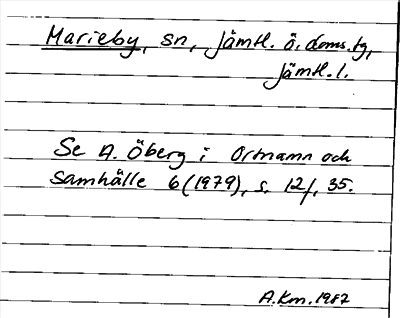 Marieby, sn, Jämtl. ö. doms. tg,
Jämtl. l.
Se A. Öberg i Ortnamn och
Samhälle 6 (1979), s. 12f, 35.
A.Km. 1982